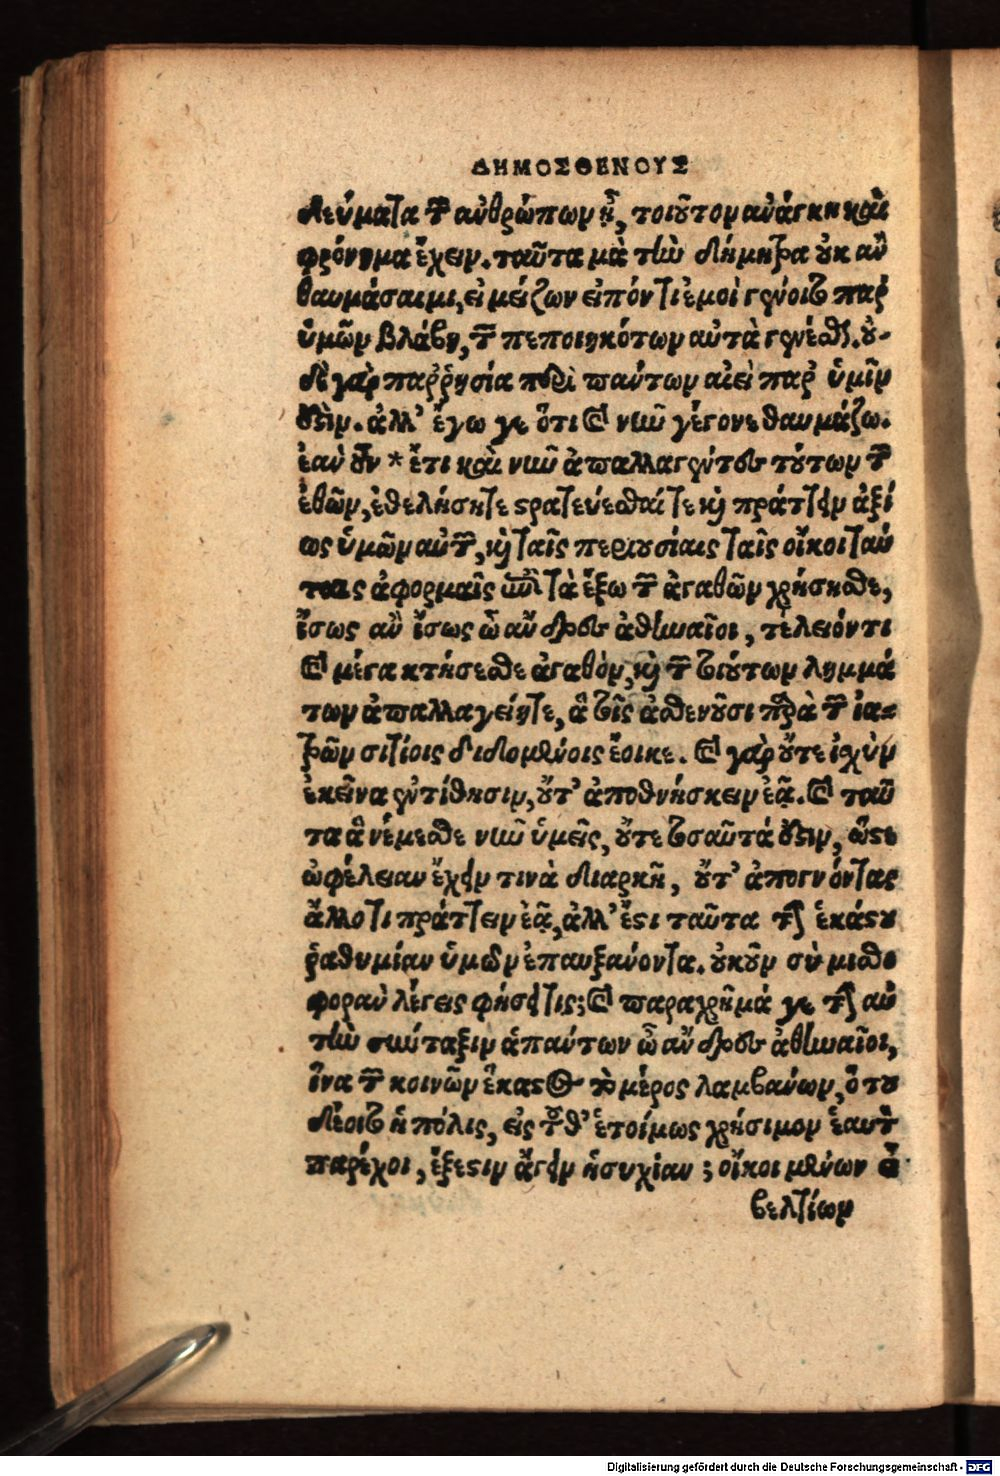 ΔΗΜΟΣΘΕΝΟΥΣ
δεύματα τῶν ἀνθρώπων ᾖ, τοιοῦτον ἀνάγκη καὶ
φρόνημα ἔχειν. ταῦτα μὰ τὴν Δήμητρα οὐκ ἂν
θαυμάσαιμι, εἰ μείζων εἰπόντι ἐμοὶ γένοιτο παρ
ὑμῶν βλάβη, τῶν πεποιηκότων αὐτὰ γενέσθαι. οὐ-
δὲ γὰρ παρρησία περὶ πάντων αἰεὶ παρ ὑμῖν
ἐστιν. ἀλλ' ἔγωγε ὅτι καὶ νῦν γέγονε θαυμάζω.
ἐὰν οὖν * ἔτι καὶ νῦν ἀπαλλαγέντες τούτων τῶν
ἐθῶν, ἐθελήσητε στρατεύεσθαί τε καὶ πράττειν ἀξί
ως ὑμῶν αὐτῶν, καὶ ταῖς περιουσίαις ταῖς οἴκοι ταύ
ταις ἀφορμαῖς ἐπὶ τὰ ἔξω τῶν ἀγαθῶν χρήσησθε,
ἴσως ἂν ἴσως ὦ ἄνδρες ἀθηναῖοι, τέλειόν τι
καὶ μέγα κτήσεσθε ἀγαθὸν, καὶ τῶν τοιούτων λημμά
των ἀπαλλαγείητε, ἃ τοῖς ἀσθενοῦσι παρὰ τῶν ἰα-
τρῶν σιτίοις διδομένοις ἔοικε. καὶ γὰρ οὔτε ἰσχὺν
ἐκεῖνα ἐντίθησιν, οὔτ' ἀποθνήσκειν ἐᾷ. καὶ ταῦ
τα ἃ νέμεσθε νῦν ὑμεῖς, οὔτε τοσαῦτά ἐστιν, ὥστε
ὠφέλειαν ἔχειν τινὰ διαρκῆ, οὔτ' ἀπογνόντας
ἄλλο τι πράττειν ἐᾷ, ἀλλ' ἔστι ταῦτα τὴν ἑκάστου
ῥαθυμίαν ὑμῶν ἐπαυξάνοντα. οὐκοῦν σὺ μισθο
φορὰν λέγεις φήσει τις; καὶ παραχρῆμά γε τὴν αὐ
τὴν σύνταξιν ἁπάντων ὦ ἄνδρες ἀθηναῖοι,
ἵνα τῶν κοινῶν ἕκαστος τὸ μέρος λαμβάνων, ὅτου
δέοιτο ἡ πόλις, εἰς τοῦθ' ἑτοίμως χρήσιμον ἑαυτὸν
παρέχοι, ἔξεστιν ἄγειν ἡσυχίαν; οἴκοι μένων εἶ
βελτίων
Digitalisierung gefördert durch die Deutsche Forschungsgemeinschaft - DFG